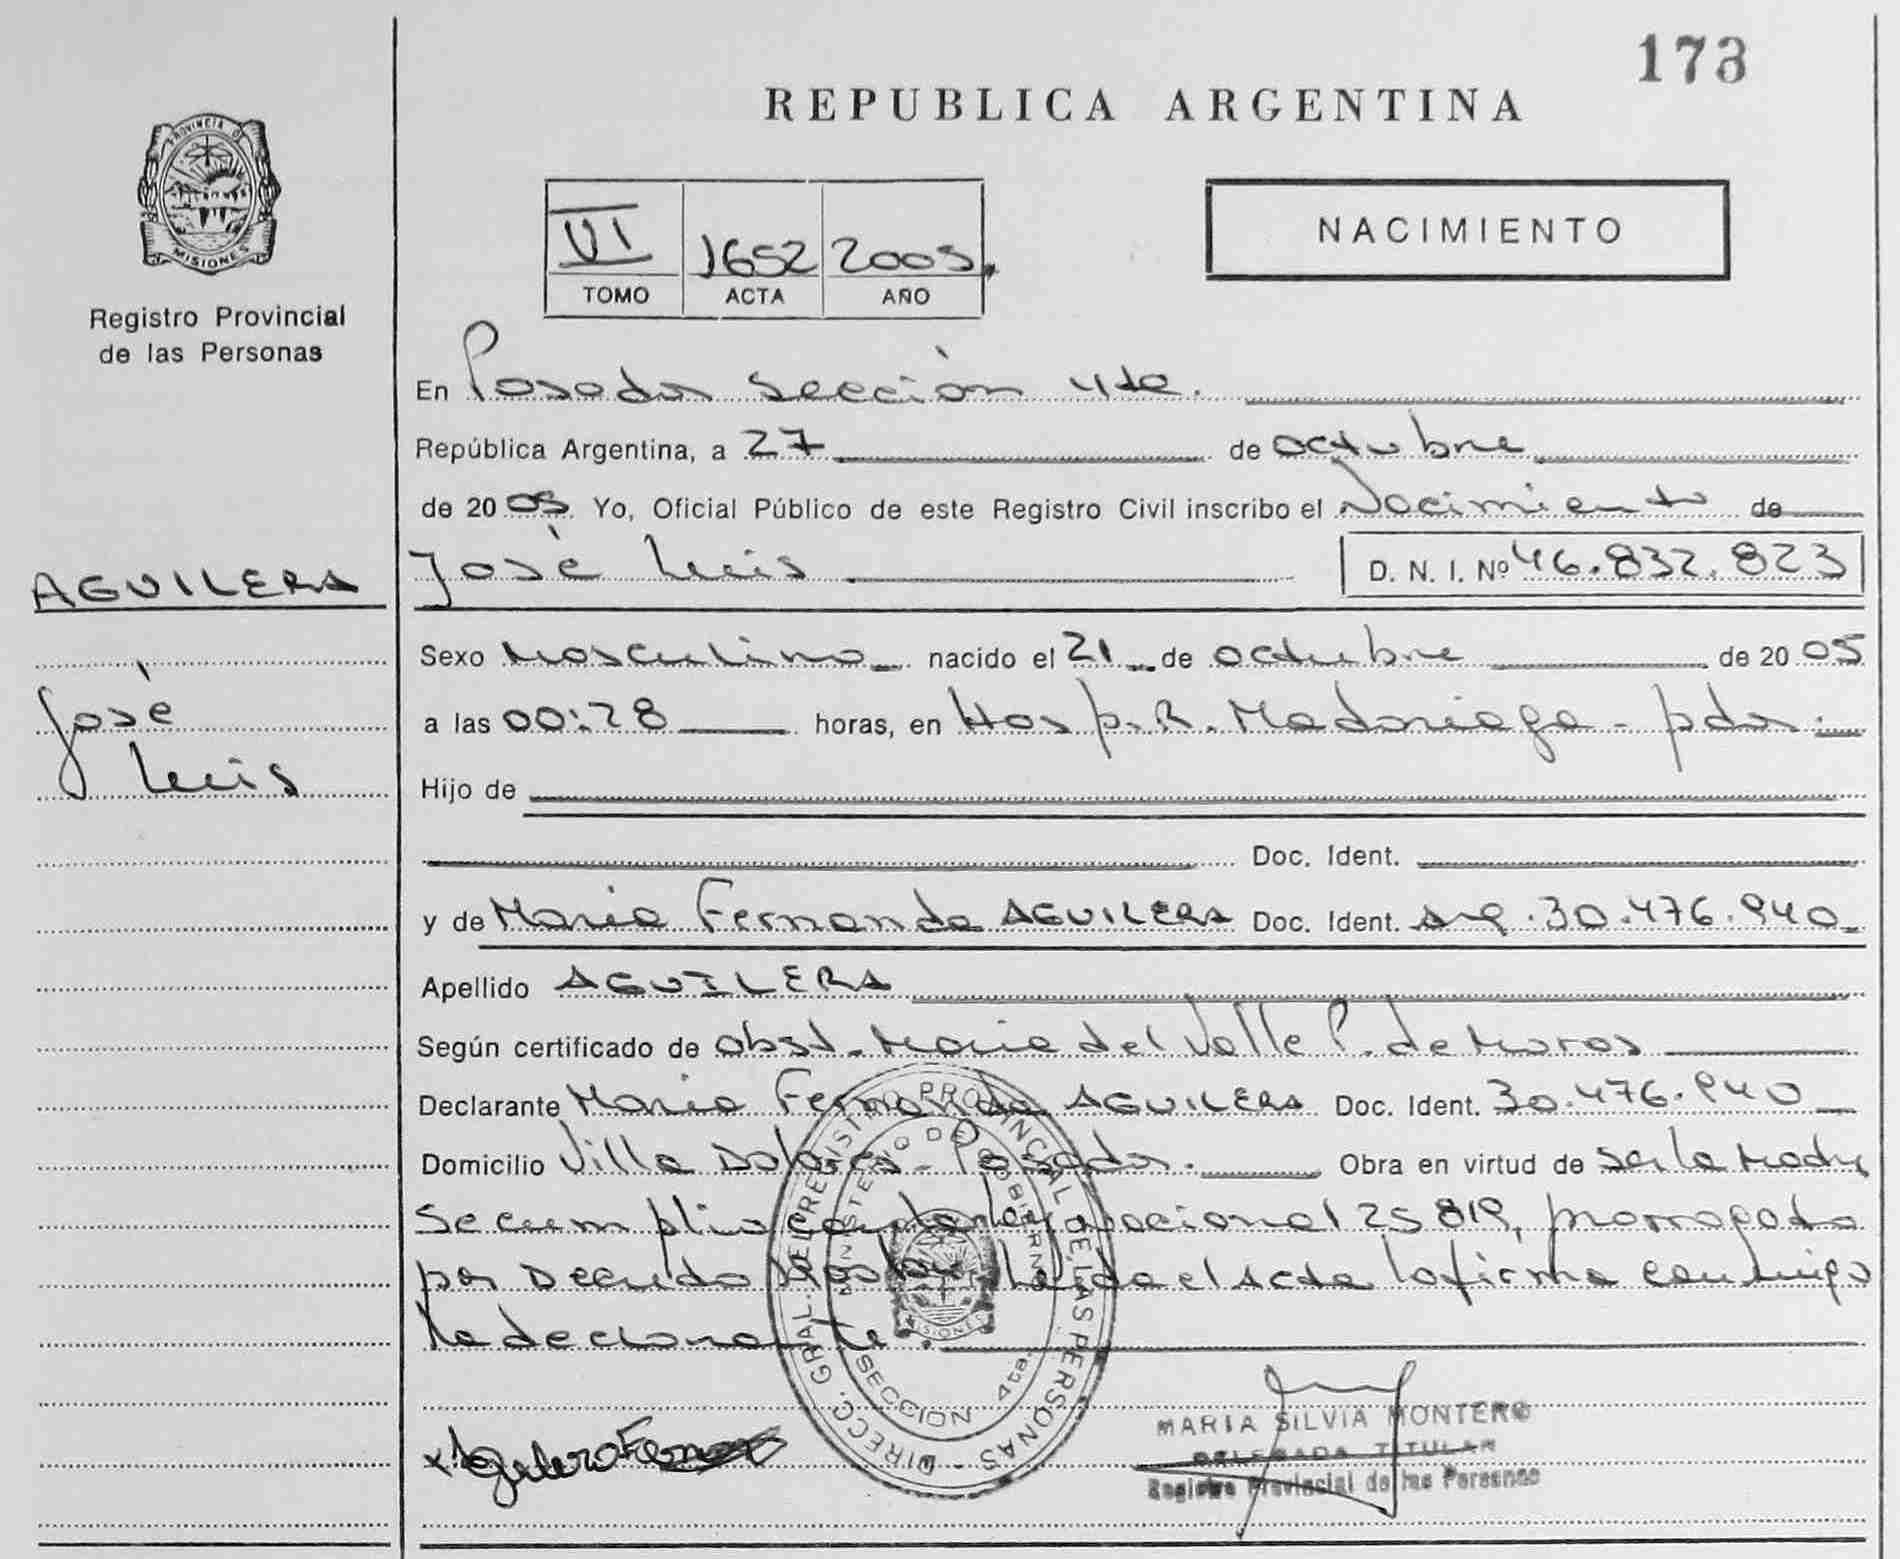 173
REPUBLICA ARGENTINA
PROVINCIA DE
MISIONES
Registro Provincial
de las Personas
VI 1652 2005.
TOMO ACTA AÑO
NACIMIENTO
En Posadas sección 4ta.
República Argentina, a 27 de octubre
de 2005 Yo, Oficial Público de este Registro Civil inscribo el Nacimiento de
AGUILERA
José Luis D. N. I. Nº 46.832.823
Sexo Masculino nacido el 21 de octubre de 2005
José
Luis
a las 00:28 horas, en Hosp. R. Madariaga - pdas.
Hijo de
Doc. Ident.
y de Maria Fernanda AGUILERA Doc. Ident. arg. 30.476.940
Apellido AGUILERA
Según certificado de obst. Maria del Valle P. de Moros
Declarante Maria Fernanda AGUILERA Doc. Ident. 30.476.940
Domicilio Villa Dolores - Posadas. Obra en virtud de ser la Madre
Se cumplio con la ley nacional 25.819, prorrogada
por Decreto Leida el Acta la firma conmigo
la declarante.
DIRECC. GRAL. DEL REGISTRO PROVINCIAL DE LAS PERSONAS
MINISTERIO DE GOBIERNO
MISIONES
SECCION 4ta.
x Aguilera Fernan
MARIA SILVIA MONTERO
DELEGADA TITULAR
Registro Provincial de las Personas